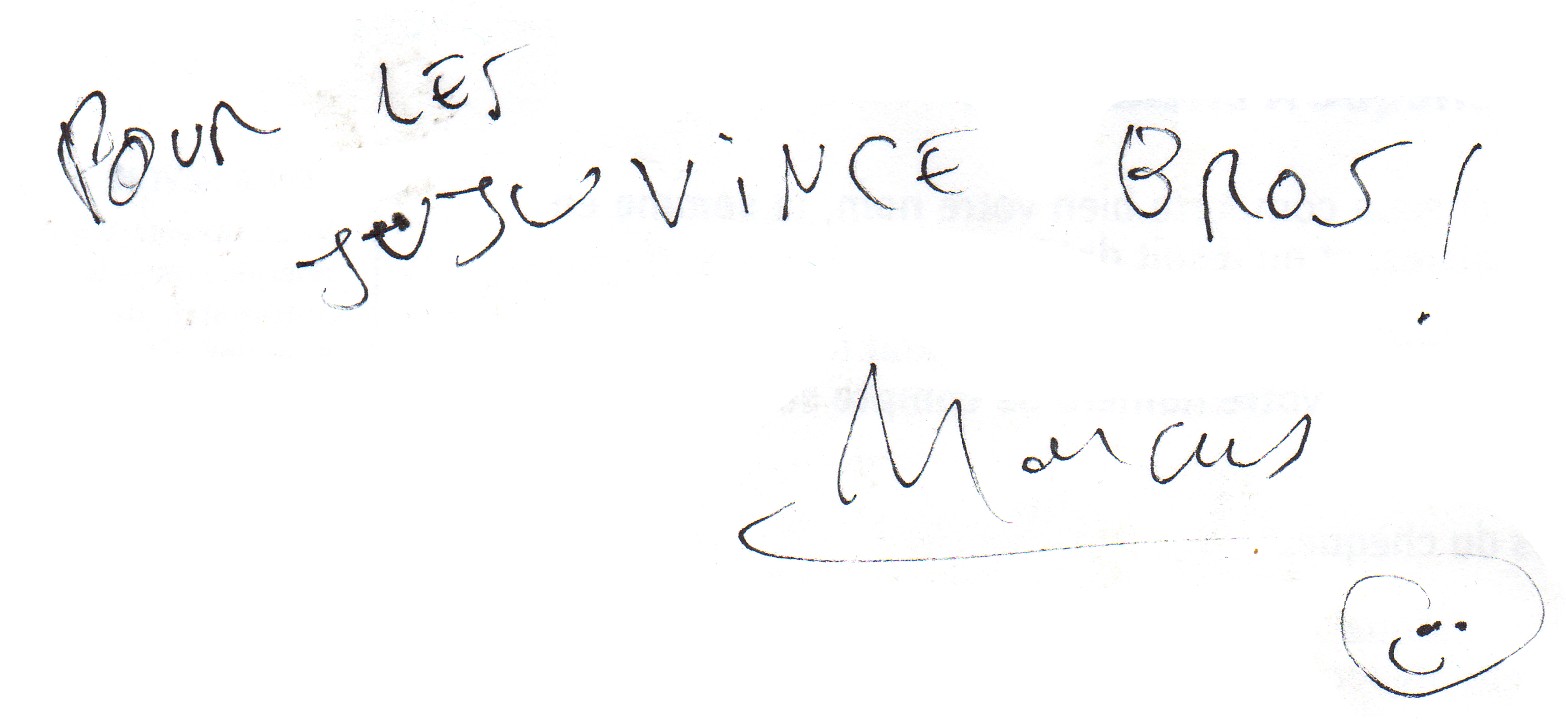 POUR LES
JUJU VINCE BROS !
Marcus